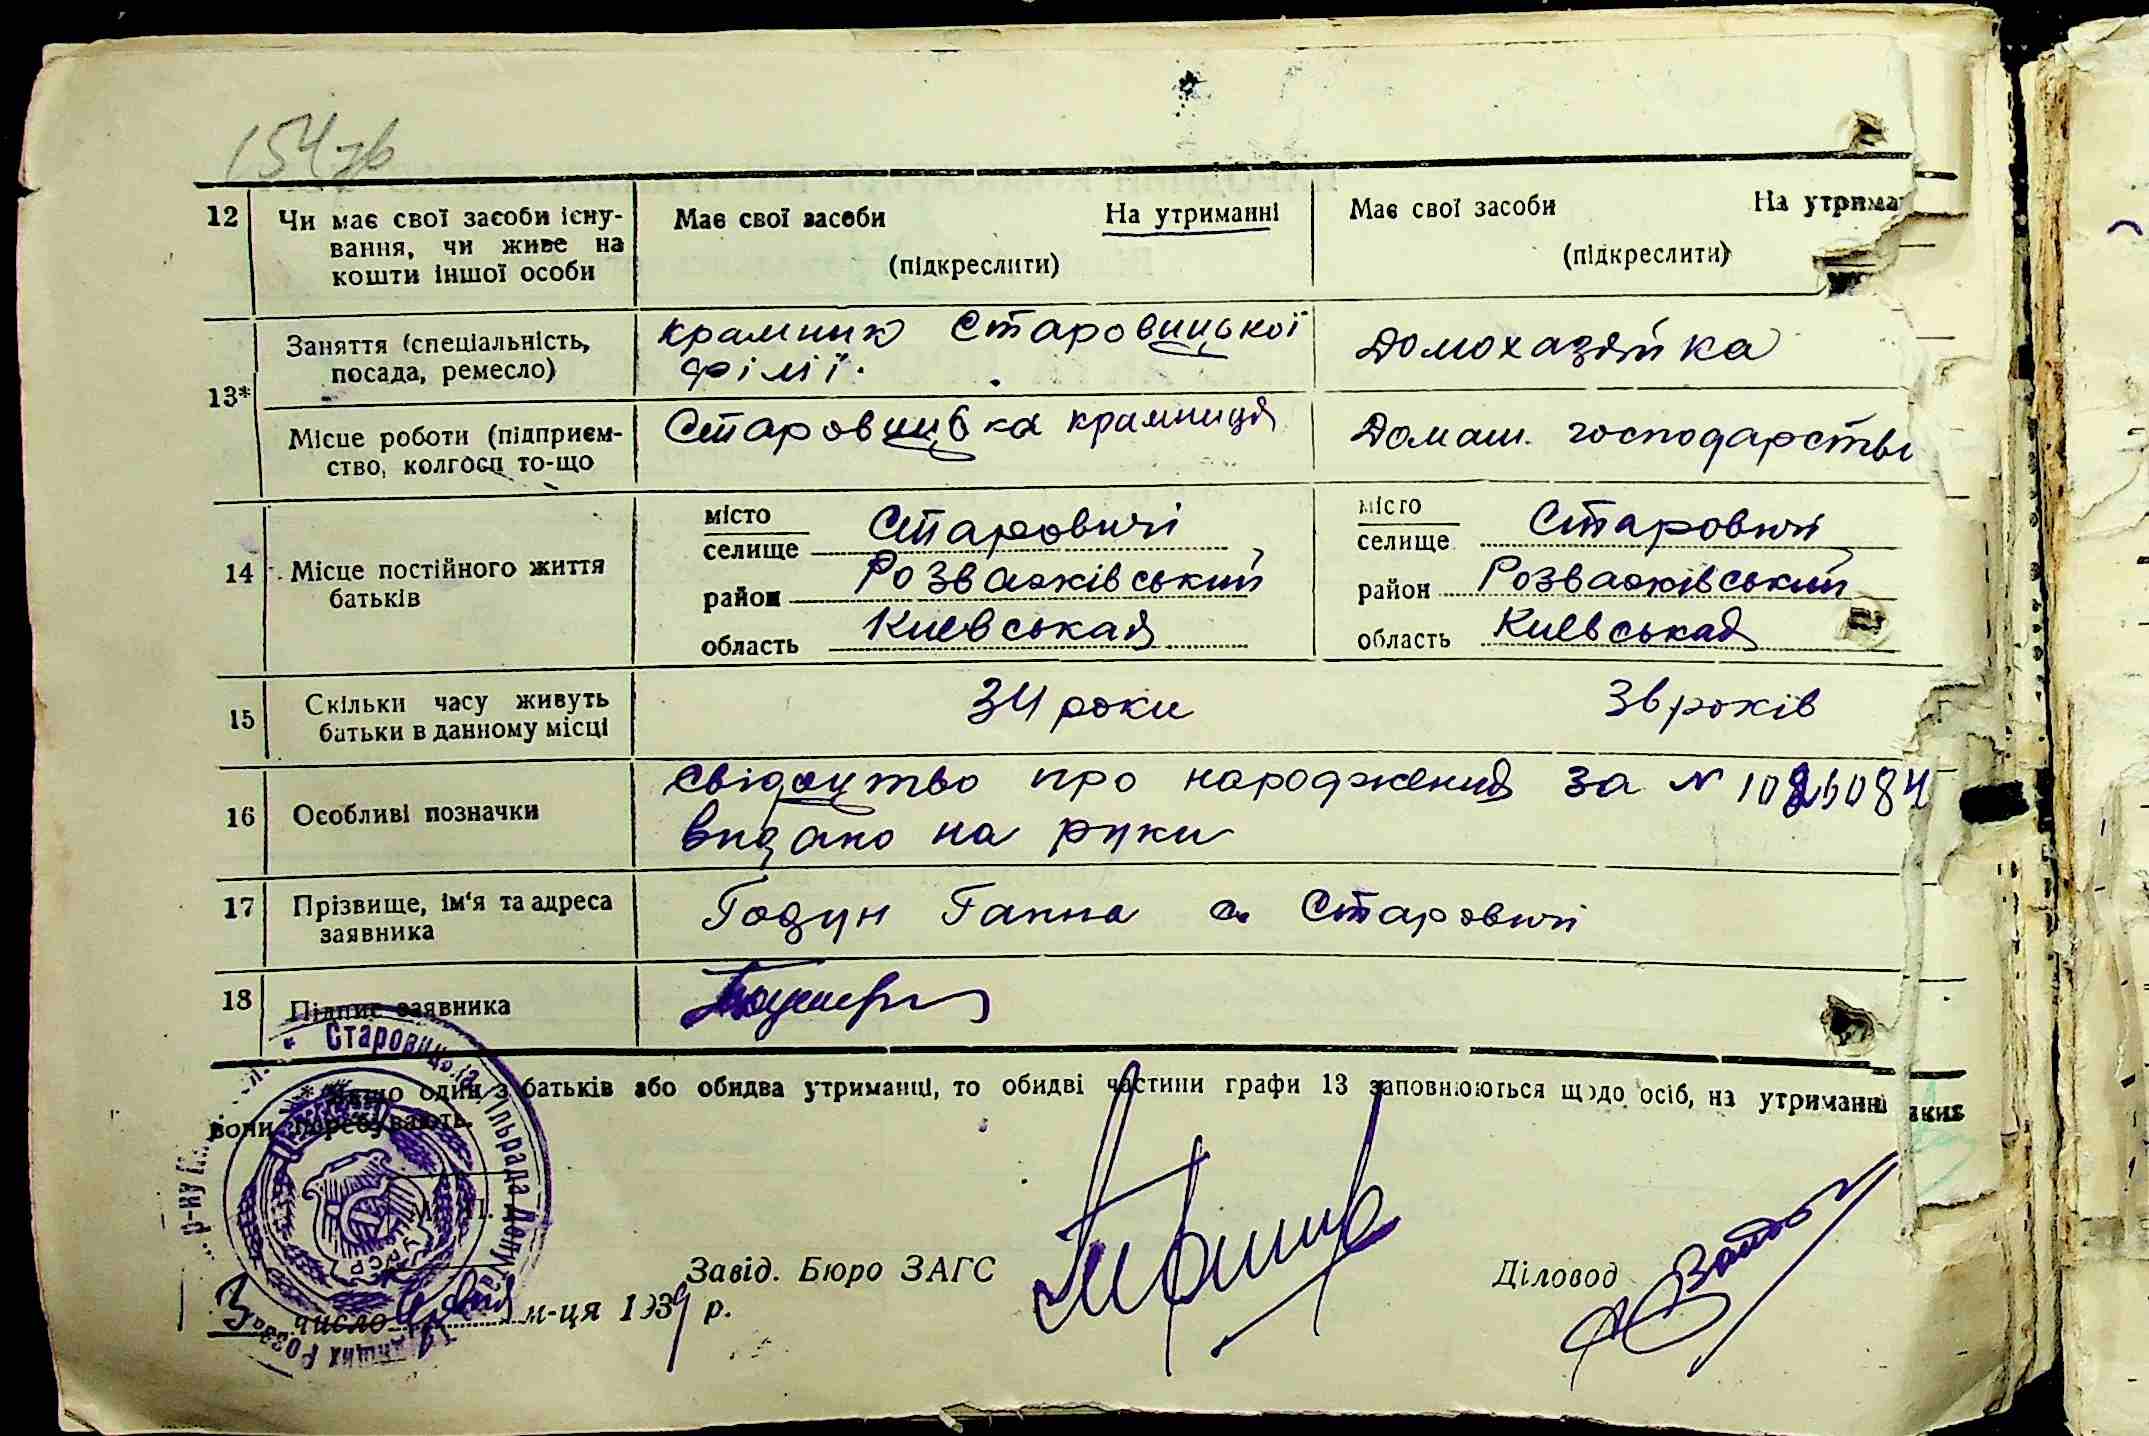 154 зв
12
Чи має свої засоби існу-
вання, чи живе на
кошти іншої особи
Має свої засоби На утриманні
(підкреслити)
Має свої засоби На утрима
(підкреслити)
13*
Заняття (спеціальність,
посада, ремесло)
крамник Старовицької
філії.
Домохазяйка
Місце роботи (підприєм-
ство, колгосп то-що
крамниця
Домаш. господарство
14
Місце постійного життя
батьків
місто
селище Старовичі
район Розважківський
область Киевськая
місто
селище Старовичі
район Розважківський
область Киевськая
15
Скільки часу живуть
батьки в данному місці
34 роки
36 років
16
Особливі позначки
свідоцтво про народження за №
видано на руки
17
Прізвище, ім'я та адреса
заявника
Годун Ганна с. Старовичі
18
Підпис заявника
* Якщо один з батьків або обидва утриманці, то обидві частини графи 13 заповнюються щодо осіб, на утриманні яких
вони перебувають.
М. П.
Завід. Бюро ЗАГС
Діловод
3 число м-ця 1939 р.